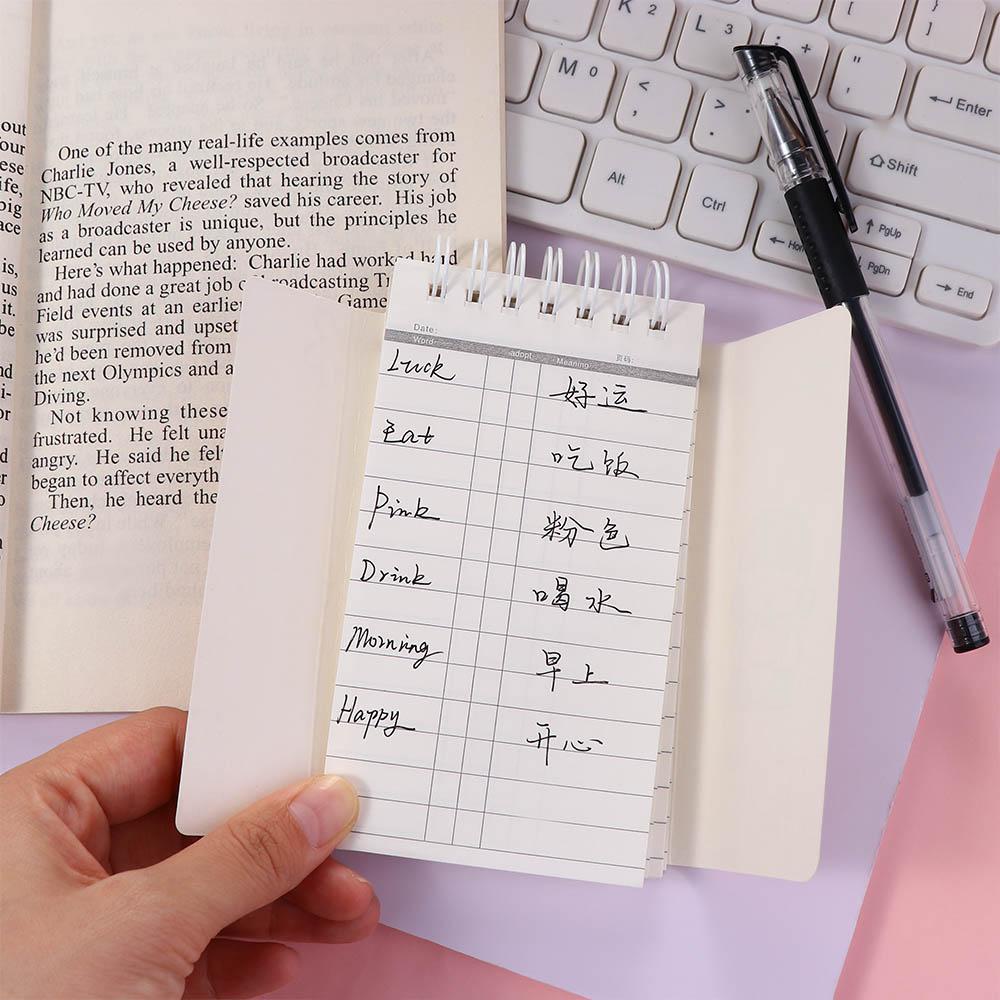 out
our
ese
ife,
big
ace
is,
us
it.
be
One of the many real-life examples comes from
Charlie Jones, a well-respected broadcaster for
NBC-TV, who revealed that hearing the story of
Who Moved My Cheese? saved his career. His job
as a broadcaster is unique, but the principles he
learned can be used by anyone.
Here's what happened: Charlie had worked hard
and had done a great job of broadcasting Tr
Field events at an earlier Game
was surprised and upset
he'd been removed from
the next Olympics and a
Diving.
Not knowing these
frustrated. He felt una
angry. He said he felt
began to affect everyth
Then, he heard the
Cheese?
Date:
Word adopt Meaning 页码:
Luck 好运
Eat 吃饭
Pink 粉色
Drink 喝水
Morning 早上
Happy 开心
K 2
L 3
M 0
Enter
Alt
Ctrl
Shift
PgUp
Hom
PgDn
End